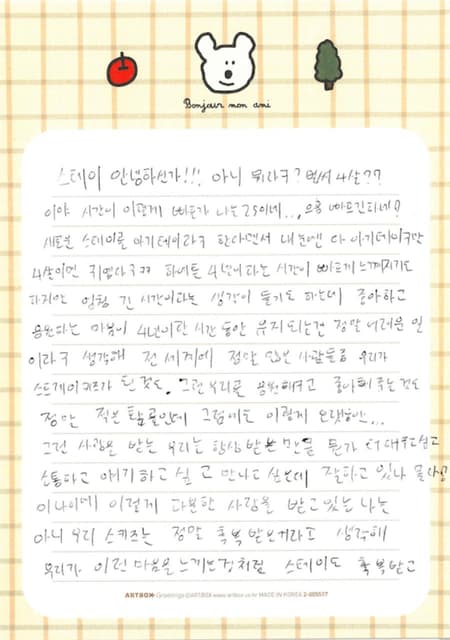 Bonjour mon ami
스테이 안녕하신가!!! 아니 뭐라구? 벌써 4살??
이야 시간이 이렇게 빠른가 나는 25이네..., 으흠 빠르긴하네?
새로운 스테이를 아기테이라구 한다면서 내 눈엔 다 아기테이구만
4살이면 귀엽다ㅋㅋㅋ 하여튼 4년이라는 시간이 빠르게 느껴지기도
하지만 엄청 긴 시간이라는 생각이 들기도 하는데 좋아하고
응원하는 마음이 4년이란 시간동안 유지되는건 정말 어려운 일
이라구 생각해 전 세계에 정말 많은 사람들중 우리가
스트레이키즈가 된것도. 그런 우리를 응원해주고 좋아해 주는것도
정말 적은 확률인데 그럼에도 이렇게
그런 사랑을 받는 우리는 항상 받은 만큼 뭔가 더 해주고싶고
소통하고 얘기하고 싶고 만나고 싶은데 잘하고 있나
이나이에 이렇게 과분한 사랑을 받고있는 나는
아니 우리 스키즈는 정말 축복 받은거라고 생각해
우리가 이런 마음을 느끼는것처럼 스테이도 축복받고
ARTBOX Greetings ©ARTBOX www.artbox.co.kr MADE IN KOREA